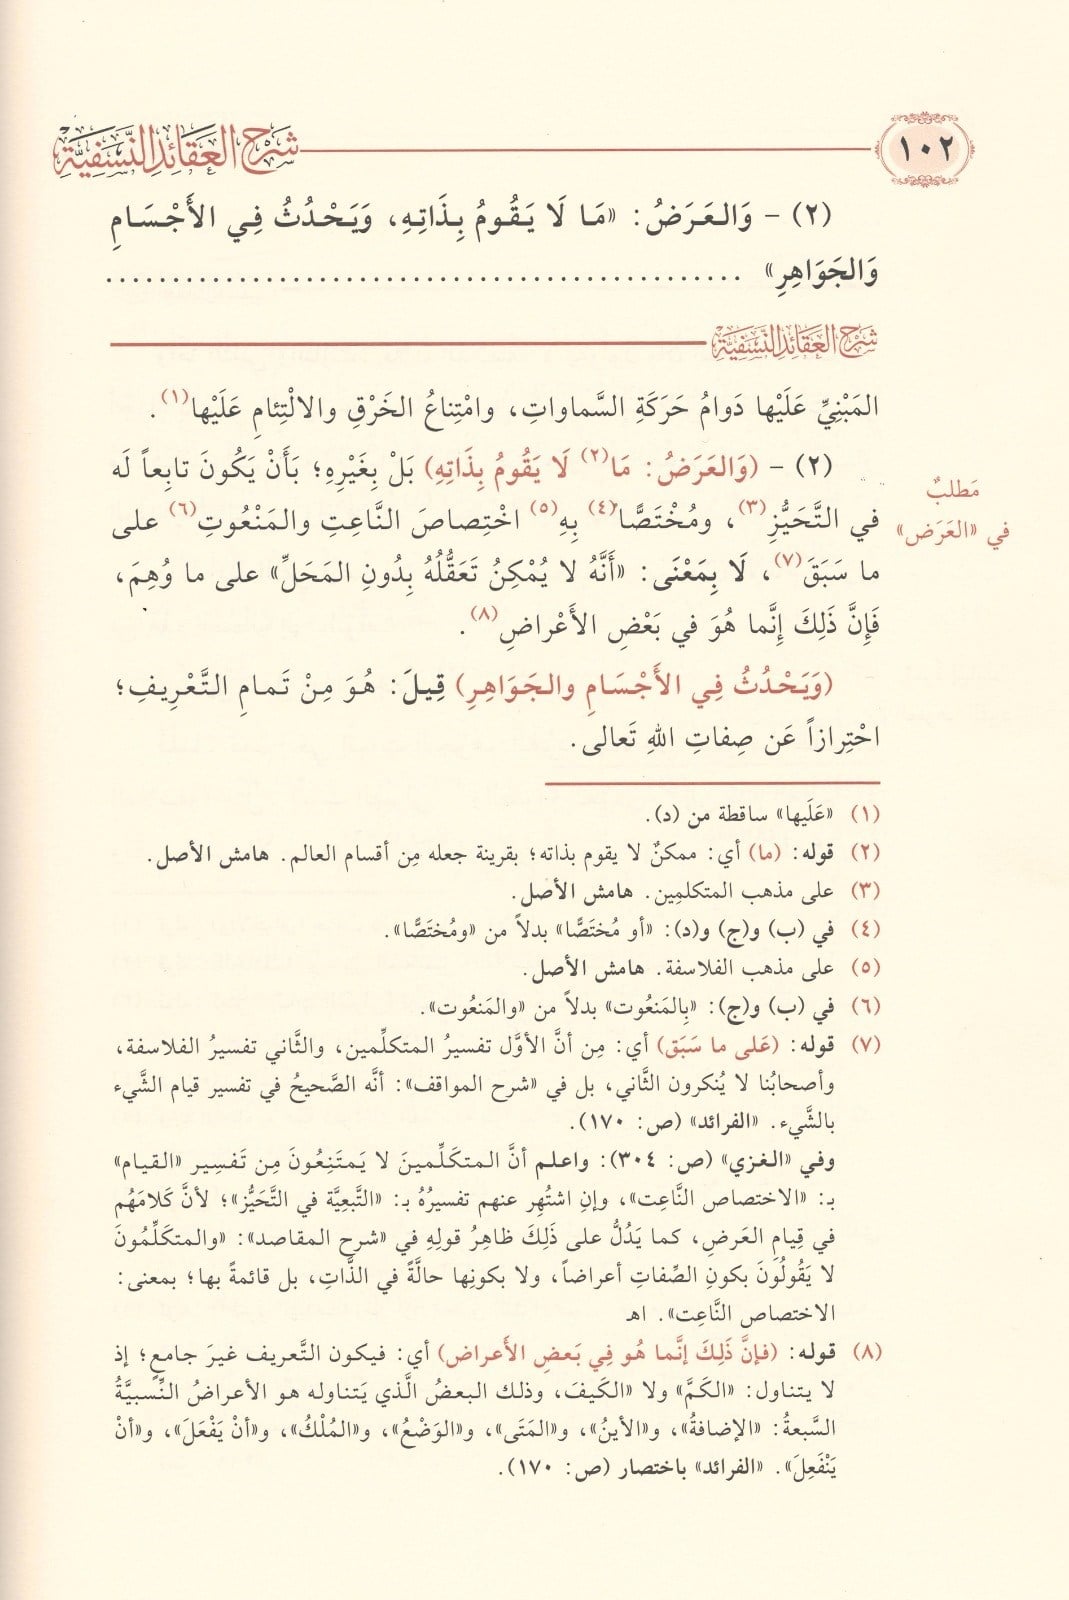 ١٠٢
شرح العقائد النسفية
(٢) - وَالعَرَضُ: «مَا لَا يَقُومُ بِذَاتِهِ، وَيَحْدُثُ فِي الأَجْسَامِ
وَالجَوَاهِرِ» ................................................
شرح العقائد النسفية
المَبْنِيِّ عَلَيْها دَوامُ حَرَكَةِ السَّماواتِ، وامْتِناعُ الخَرْقِ والالْتِئامِ عَلَيْها(١).
(٢) - (وَالعَرَضُ: مَا(٢) لَا يَقُومُ بِذَاتِهِ) بَلْ بِغَيْرِهِ؛ بَأَنْ يَكُونَ تابِعاً لَه
مَطلبٌ
في «العَرَض»
في التَّحَيُّزِ(٣)، ومُخْتَصًّا(٤) بِهِ(٥) اخْتِصاصَ النَّاعِتِ والمَنْعُوتِ(٦) على
ما سَبَقَ(٧)، لَا بِمَعْنَى: «أَنَّهُ لا يُمْكِنُ تَعَقُّلُهُ بِدُونِ المَحَلِّ» على ما وُهِمَ،
فَإِنَّ ذَلِكَ إِنَّما هُوَ في بَعْضِ الأَعْراضِ(٨).
(وَيَحْدُثُ فِي الأَجْسَامِ والجَوَاهِرِ) قِيلَ: هُوَ مِنْ تَمامِ التَّعْرِيفِ؛
احْتِرازاً عَن صِفاتِ اللهِ تَعالى.
(١) «عَلَيها» ساقطة من (د).
(٢) قوله: (ما) أي: ممكنٌ لا يقوم بذاته؛ بقرينة جعله مِن أقسام العالم. هامش الأصل.
(٣) على مذهب المتكلمِين. هامش الأصل.
(٤) في (ب) و(ج) و(د): «أو مُختَصًّا» بدلاً من «ومُختَصًّا».
(٥) على مذهب الفلاسفة. هامش الأصل.
(٦) في (ب) و(ج): «بِالمَنعُوت» بدلاً من «والمَنعُوت».
(٧) قوله: (عَلى ما سَبَق) أي: مِن أنَّ الأوَّل تفسيرُ المتكلِّمين، والثَّاني تفسيرُ الفلاسفة،
وأصحابُنا لا يُنكرون الثَّاني، بل في «شرح المواقف»: أنَّه الصَّحيحُ في تفسير قيام الشَّيء
بالشَّيء. «الفرائد» (ص: ١٧٠).
وفي «الغزي» (ص: ٣٠٤): واعلم أنَّ المتكَلِّمينَ لا يَمتَنِعُونَ مِن تَفسِير «القيام»
بـ: «الاختصاص النَّاعِت»، وإنِ اشتُهِر عنهم تفسيرُهُ بـ: «التَّبعِيَّة في التَّحَيُّز»؛ لأنَّ كَلامَهُم
في قِيامِ العَرضِ، كما يَدُلُّ على ذَلِكَ ظاهِرُ قولِهِ في «شرح المقاصد»: «والمتكَلِّمُونَ
لا يَقُولُونَ بكونِ الصِّفاتِ أعراضاً، ولا بكونِها حالَّةً في الذَّاتِ، بل قائمةً بها؛ بمعنى:
الاختصاص النَّاعِت». اهـ
(٨) قوله: (فإنَّ ذَلِكَ إنَّما هُو فِي بَعضِ الأعراض) أي: فيكون التَّعريف غيرَ جامعٍ؛ إذ
لا يتناول: «الكَمَّ» ولا «الكَيفَ، وذلك البعضُ الَّذي يَتناوله هو الأعراضُ النِّسبيَّةُ
السَّبعةُ: «الإضافةُ»، و«الأينُ»، و«المَتَى»، و«الوَضْعُ»، و«المُلْكُ»، و«أنْ يَفْعَلَ»، و«أنْ
يَنْفَعِلَ». «الفرائد» باختصار (ص: ١٧٠).